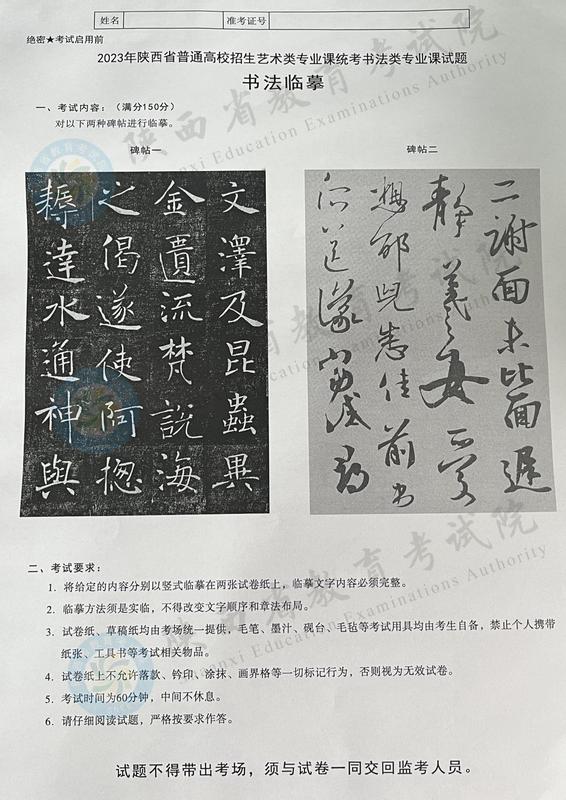 姓名
准考证号
绝密★考试启用前
2023年陕西省普通高校招生艺术类专业课统考书法类专业课试题
书法临摹
一、考试内容：（满分150分）
对以下两种碑帖进行临摹。
碑帖一
碑帖二
文澤及昆蟲異
金匱流梵說海
之偈遂使阿揔
耨達水通神與
二謝面未比面遲
靜羲之女愛
想邰兒悉佳前
所送議當
二、考试要求：
1. 将给定的内容分别以竖式临摹在两张试卷纸上，临摹文字内容必须完整。
2. 临摹方法须是实临，不得改变文字顺序和章法布局。
3. 试卷纸、草稿纸均由考场统一提供，毛笔、墨汁、砚台、毛毡等考试用具均由考生自备，禁止个人携带
纸张、工具书等考试相关物品。
4. 试卷纸上不允许落款、钤印、涂抹、画界格等一切标记行为，否则视为无效试卷。
5. 考试时间为60分钟，中间不休息。
6. 请仔细阅读试题，严格按要求作答。
试题不得带出考场，须与试卷一同交回监考人员。
陕西省教育考试院
Shaanxi Education Examinations Authority